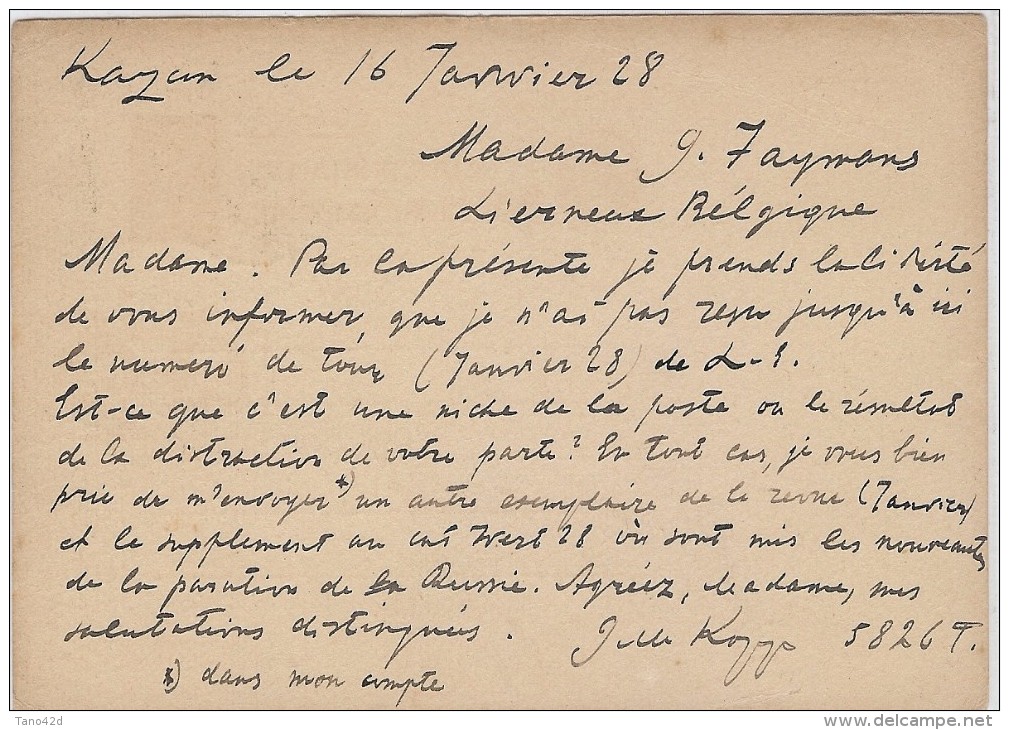 Kazan le 16 Janvier 28
Madame J. Faymans
Lierneux Bélgique
Madame. Par la présente je prends la liberté
de vous informer, que je n'ai pas reçu jusqu'à ici
le numeró de (Janvier 28) de L-S.
Est-ce que c'est une niche de la poste ou le résultat
de la distraction de votre parte? En tout cas, je vous bien
prie de m'envoyer *) un autre exemplaire de la revue (Janvier)
et le supplement au cat Yvert 28 où sont mis les nouveautés
de la parution de la Russie. Agréez, Madame, mes
salutations distinguées. 5826 T.
*) dans mon compte
Tano42d
www.delcampe.net